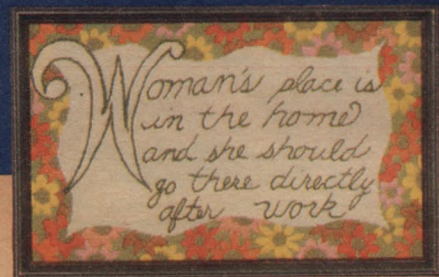 Woman's place is
in the home
and she should
go there directly
after work